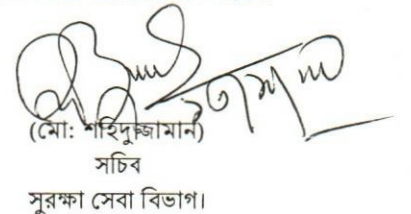 (মো: শহিদুজ্জামান)
সচিব
সুরক্ষা সেবা বিভাগ।